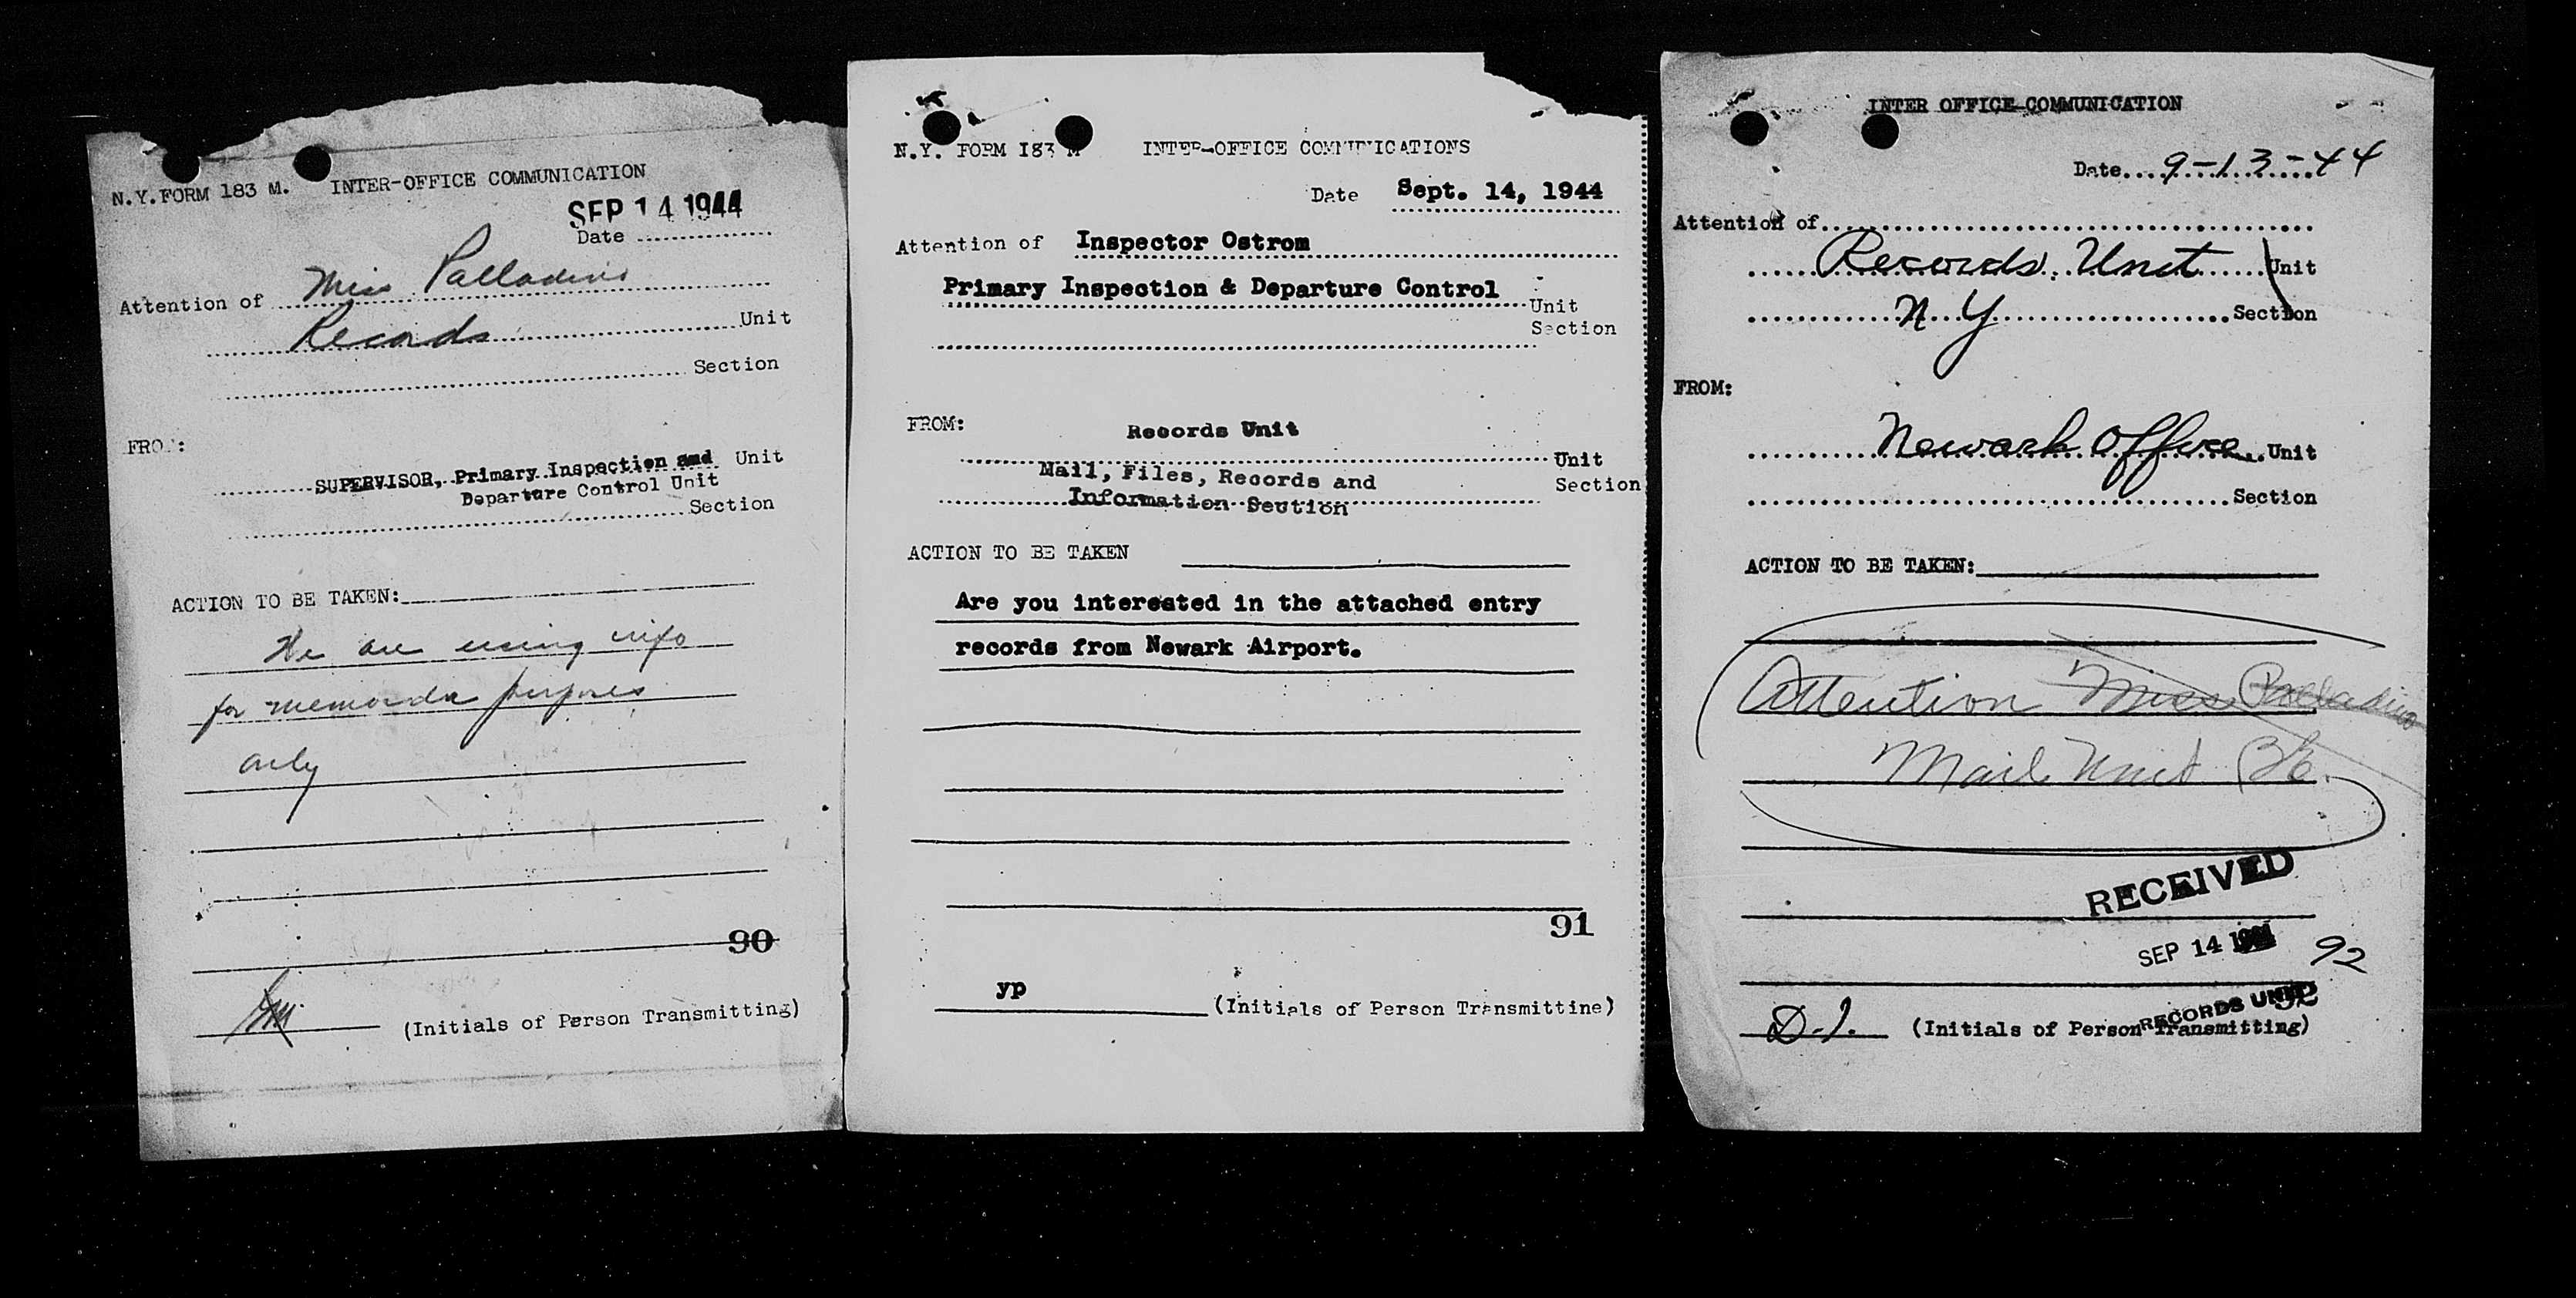 N.Y. FORM 183 M. INTER-OFFICE COMMUNICATION
SEP 14 1944
Date
Attention of Miss Palladino
Records Unit
Section
FROM:
SUPERVISOR, Primary Inspection and Unit
Departure Control Unit
Section
ACTION TO BE TAKEN:
We are using info
for memoranda purposes
only
90
(Initials of Person Transmitting)
N.Y. FORM I83 M INTER-OFFICE COMMUNICATIONS
Date Sept. 14, 1944
Attention of Inspector Ostrom
Primary Inspection & Departure Control
Unit
Section
FROM:
Records Unit
Unit
Mail, Files, Records and
Section
Information Section
ACTION TO BE TAKEN
Are you interested in the attached entry
records from Newark Airport.
91
yp
(Initials of Person Transmittine)
INTER OFFICE COMMUNICATION
Date 9-13-44
Attention of
Records Unit Unit
N Y Section
FROM:
Newark Office Unit
Section
ACTION TO BE TAKEN:
Attention Miss Palladino
Mail Unit
RECEIVED
SEP 14 1944
92
RECORDS UNIT
92
D.J. (Initials of Person Transmitting)